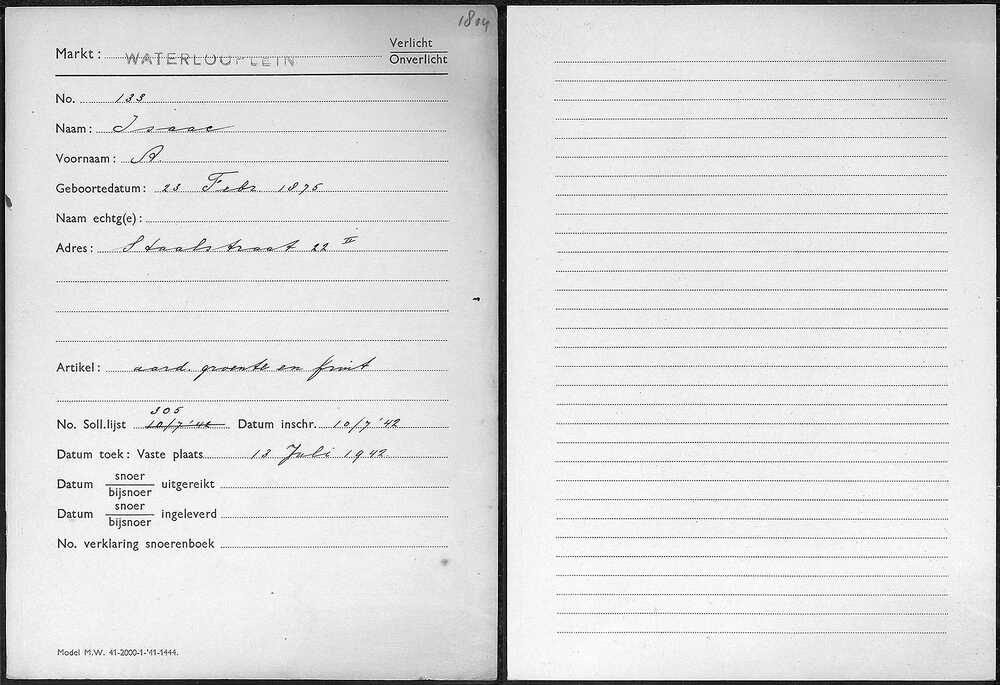 1804
Markt: WATERLOOPLEIN Verlicht
Onverlicht
No. 133
Naam: Isaac
Voornaam: A
Geboortedatum: 23 Febr 1875
Naam echtg(e):
Adres: Staalstraat 22 II
Artikel: aard. groente en fruit
305
No. Soll.lijst 10/7 '42 Datum inschr. 10/7 '42
Datum toek: Vaste plaats 13 Juli 1942
Datum snoer
bijsnoer uitgereikt
Datum snoer
bijsnoer ingeleverd
No. verklaring snoerenboek
Model M.W. 41-2000-1-'41-1444.